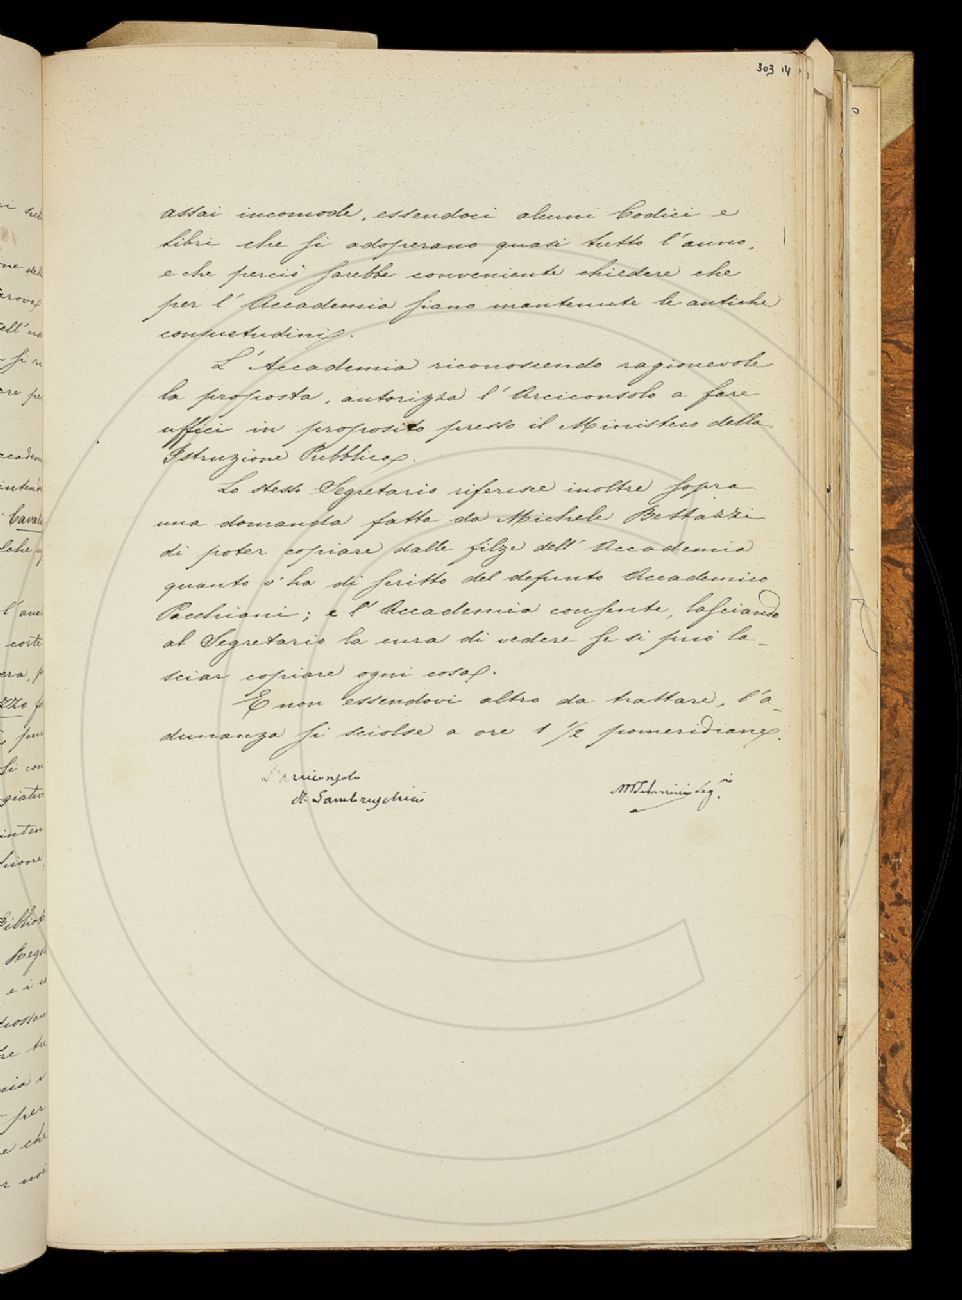 303 14
assai incomode, essendoci alcuni Codici e
Libri che si adoperano quasi tutto l'anno,
e che perciò sarebbe conveniente chiedere che
per l'Accademia siano mantenute le antiche
consuetudini.
L'Accademia riconoscendo ragionevole
la proposta, autorizza l'Arciconsolo a fare
uffici in proposito presso il Ministero della
Istruzione Pubblica.
Lo stesso Segretario riferisce inoltre sopra
una domanda fatta da Michele Bettazzi
di poter copiare dalle filze dell'Accademia
quanto v'ha di scritto del defunto Accademico
Pacchiani; e l'Accademia consente, lasciando
al Segretario la cura di vedere se si può la-
sciar copiare ogni cosa.
E non essendovi altro da trattare, l'a-
dunanza si sciolse a ore 1 1/2 pomeridiane.
L'arciconsolo
R. Lambruschini
Seg.rio